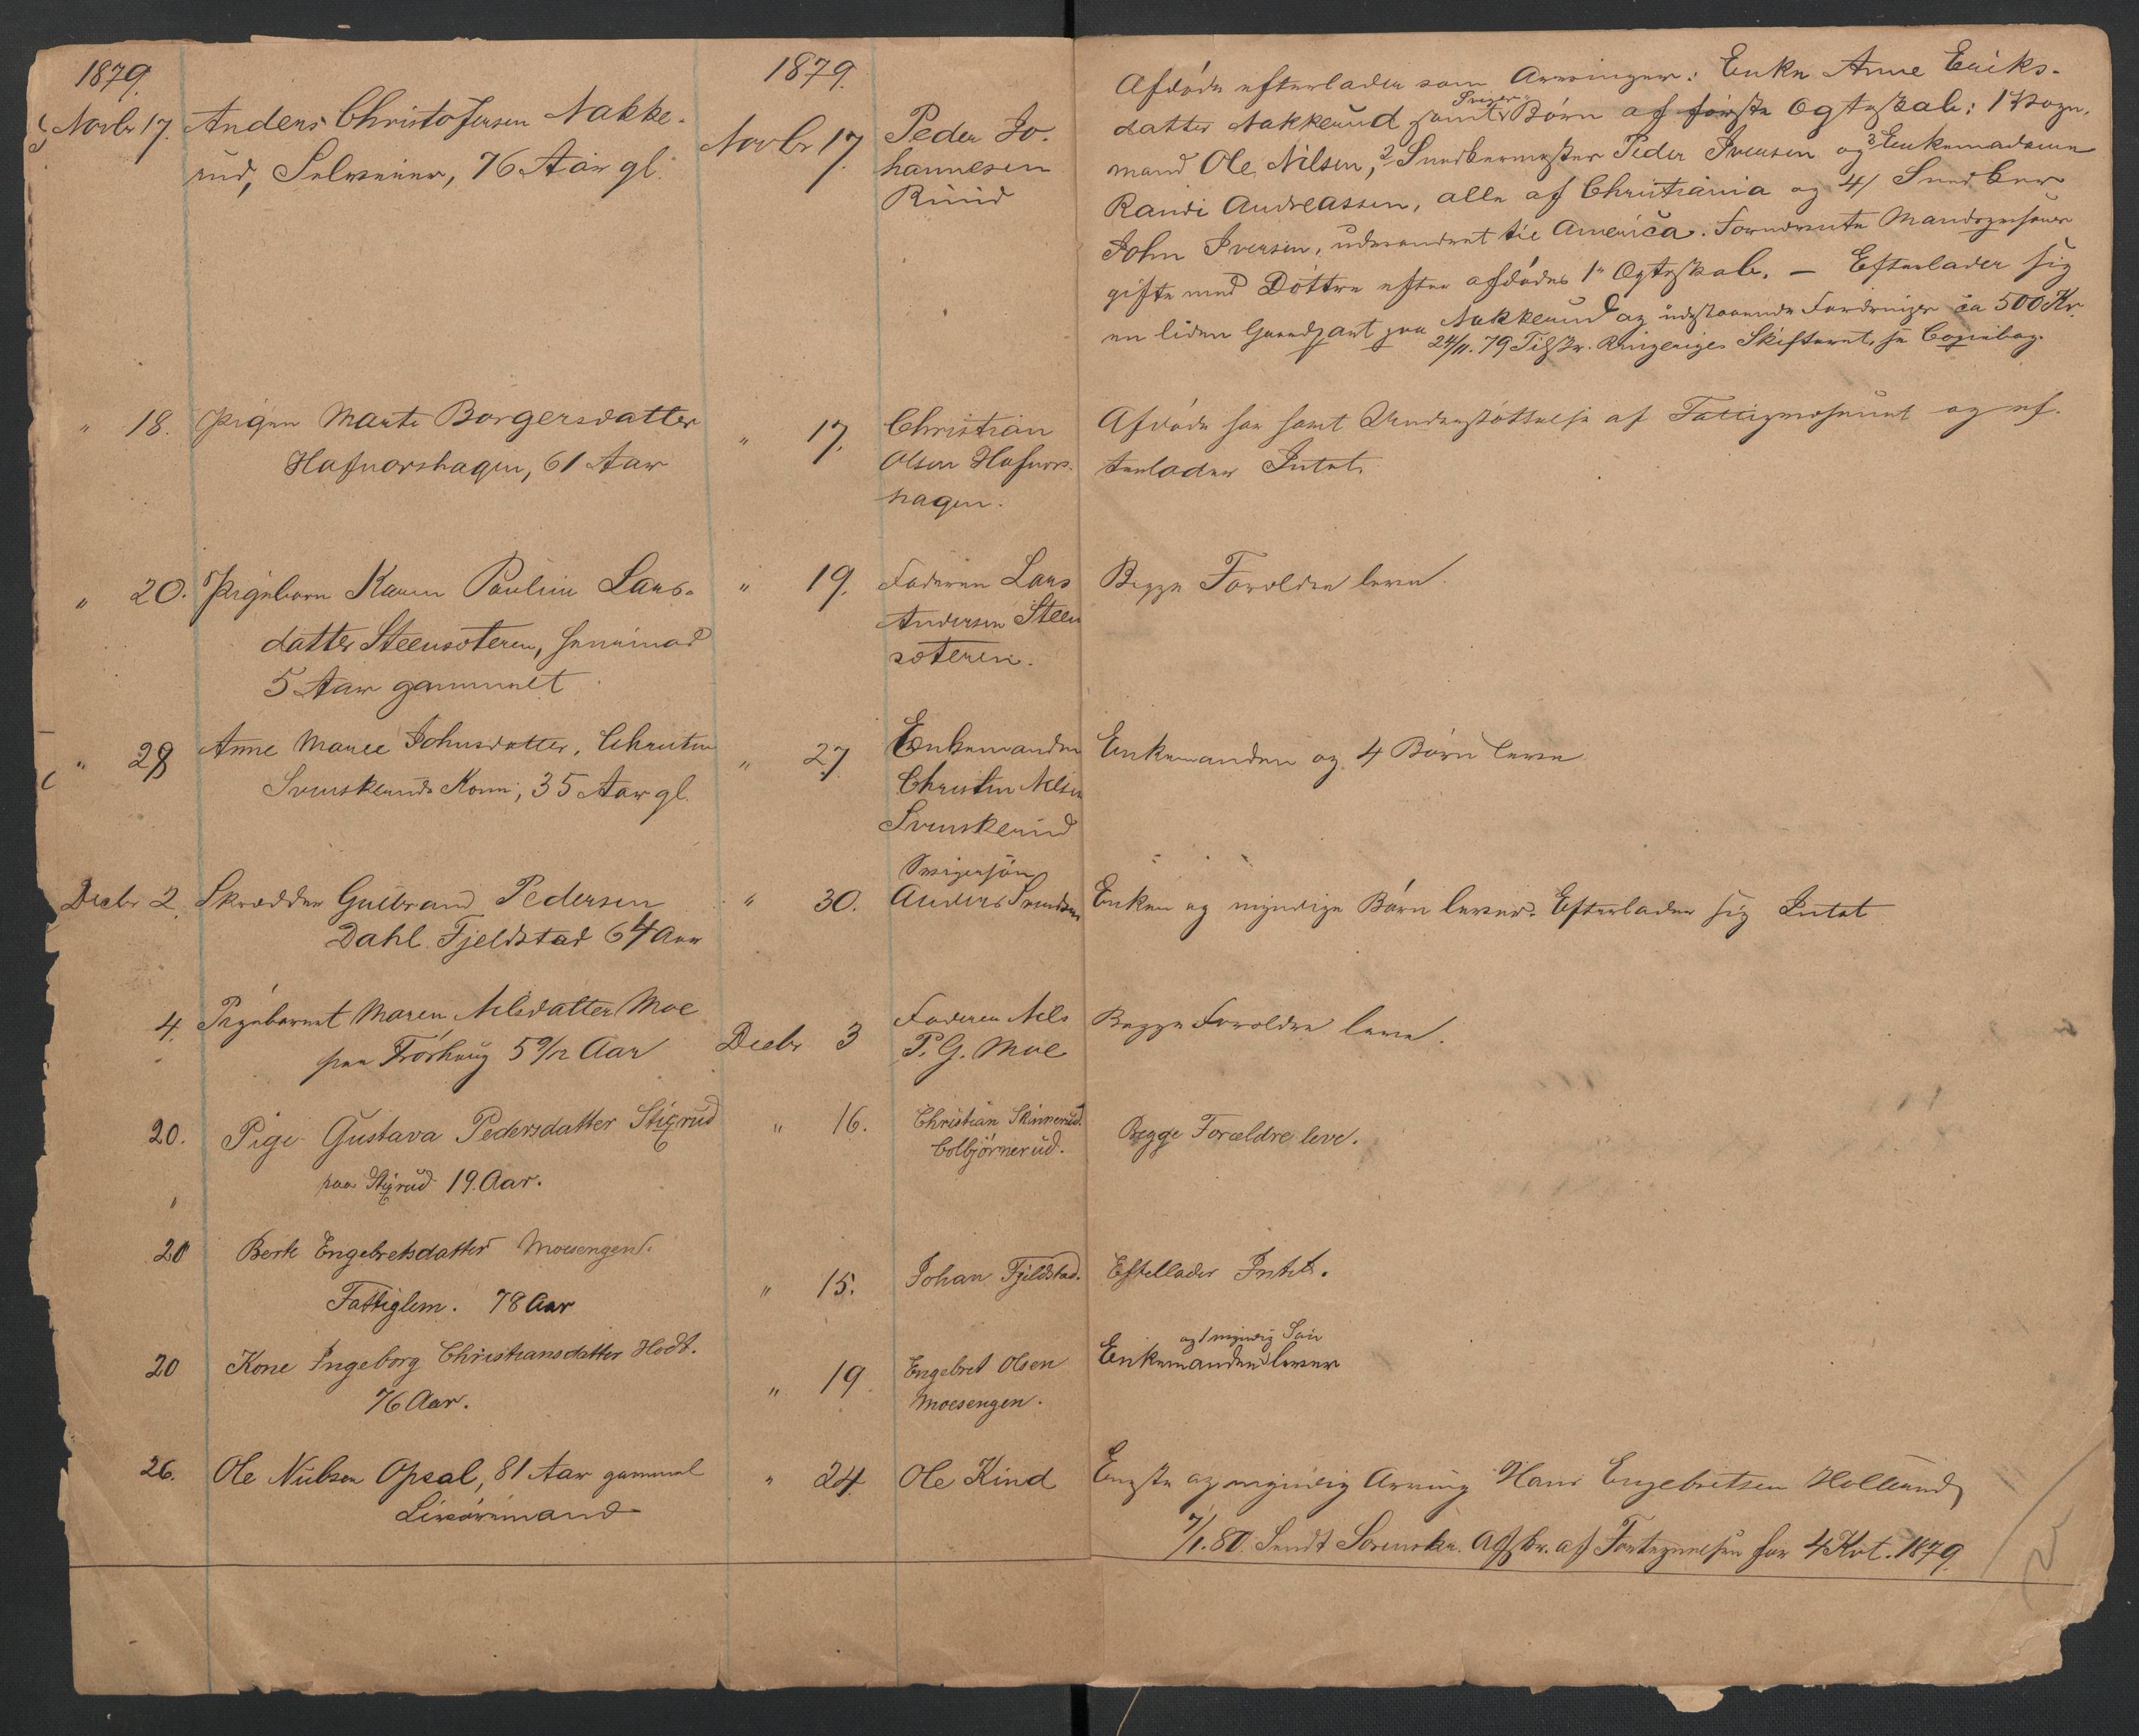 1879.
Novbr 17. Anders Christofersen Nakke-
rud, Selveeier, 76 Aar gl.
1879.
Novbr 17. Peder Jo-
hannesen
Ruud
Afdøde efterlader som Arvinger: Enke Anne Eriks-
datter Nakkerud samt Sviger Børn af første Ægteskab: 1 Vogn-
mand Ole Nilsen, 2 Snedkermester Peder Iversen og 3 Enkemadame
Randi Andreassen, alle af Christiania og 4/ Snedker
John Iversen, udvandret til America. Fornævnte Mandspersoner
gifte med Døttre efter afdødes 1ste Ægteskab. — Efterlader sig
en liden Gaardpart paa Nakkerud og udestaaende Fordringer ca 500 Kr.
24/11. 79 Tilskr. Ringeriges Skifteret, se Copiebog.
" 18. Pigen Marte Borgersdatter
Hafnorshagen, 61 Aar
" 17. Christian
Olsen Hafnors-
hagen.
Afdøde har havt Understøttelse af Fattigvæsenet og ef-
terlader Intet.
" 20. Pigebarn Karen Pauline Lars-
datter Steensæteren,
5 Aar gammelt
" 19. Faderen Lars
Andersen Steen
sæteren.
Begge Forældre leve.
" 28 Anne Marie Johnsdatter, Christen
Svenskeruds Kone, 35 Aar gl.
" 27 Enkemanden
Christen Nilsen
Svenskerud
Enkemanden og 4 Børn leve
Decbr 2. Skrædder Gulbrand Pedersen
Dahl Fjeldstad 64 Aar
" 30. Svigersøn
Anders Svendsen
Enken og myndige Børn lever. Efterlader sig Intet
4. Pigebarnet Maren Nilsdatter Moe
paa Frøshaug 5 9/12 Aar
Decbr 3 Faderen Nils
P. G. Moe
Begge Forældre leve.
20. Pige Gustava Pedersdatter Stixrud
paa Stixrud 19 Aar.
" 16. Christian Skinnerud.
Colbjörnerud.
Begge Forældre leve.
"
20 Berte Engebretsdatter Moesengen.
Fattiglem. 78 Aar
" 15. Johan Fjeldstad.
Eftellader Intet.
20 Kone Ingeborg Christiansdatter Hodt.
76 Aar.
" 19. Engebret Olsen
Moesengen.
og 1 myndig Søn
Enkemanden lever
26. Ole Nielsen Opsal, 81 Aar gammel
Livøremand
" 24. Ole Kind
Eneste og myndig Arving Hans Engebretsen Hollerud
7/1. 80. Sendt Sorenskr. Afskr. af Fortegnelsen for 4 Kvt. 1879.